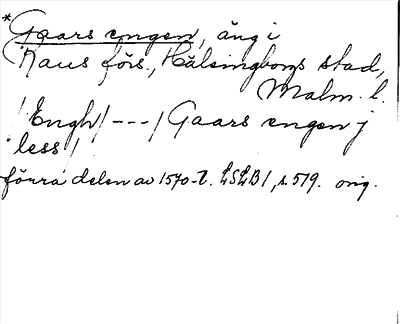 *Gaars engen, äng i
Raus förs., Hälsingborgs stad,
Malm. l.
/Engh/ --- / Gaars engen j
less /
förra delen av 1570-t. LSLB 1, s. 519. orig.